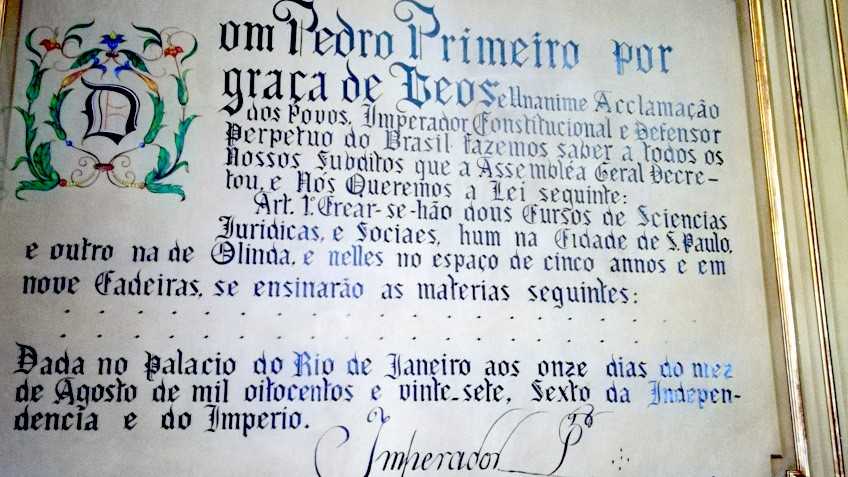 Dom Pedro Primeiro por
graça de Deos e Unanime Acclamação
dos Povos, Imperador Constitucional e Defensor
Perpetuo do Brasil fazemos saber a todos os
Nossos Subditos que a Assembléa Geral Decre-
tou, e Nós Queremos a Lei seguinte:
Art. 1º. Crear-se-hão dous Cursos de Sciencias
Juridicas, e Sociaes, hum na Cidade de S. Paulo,
e outro na de Olinda, e nelles no espaço de cinco annos e em
nove Cadeiras, se ensinarão as materias seguintes:
Dada no Palacio do Rio de Janeiro aos onze dias do mez
de Agosto de mil oitocentos e vinte-sete, Sexto da Indepen-
dencia e do Imperio.
Imperador P